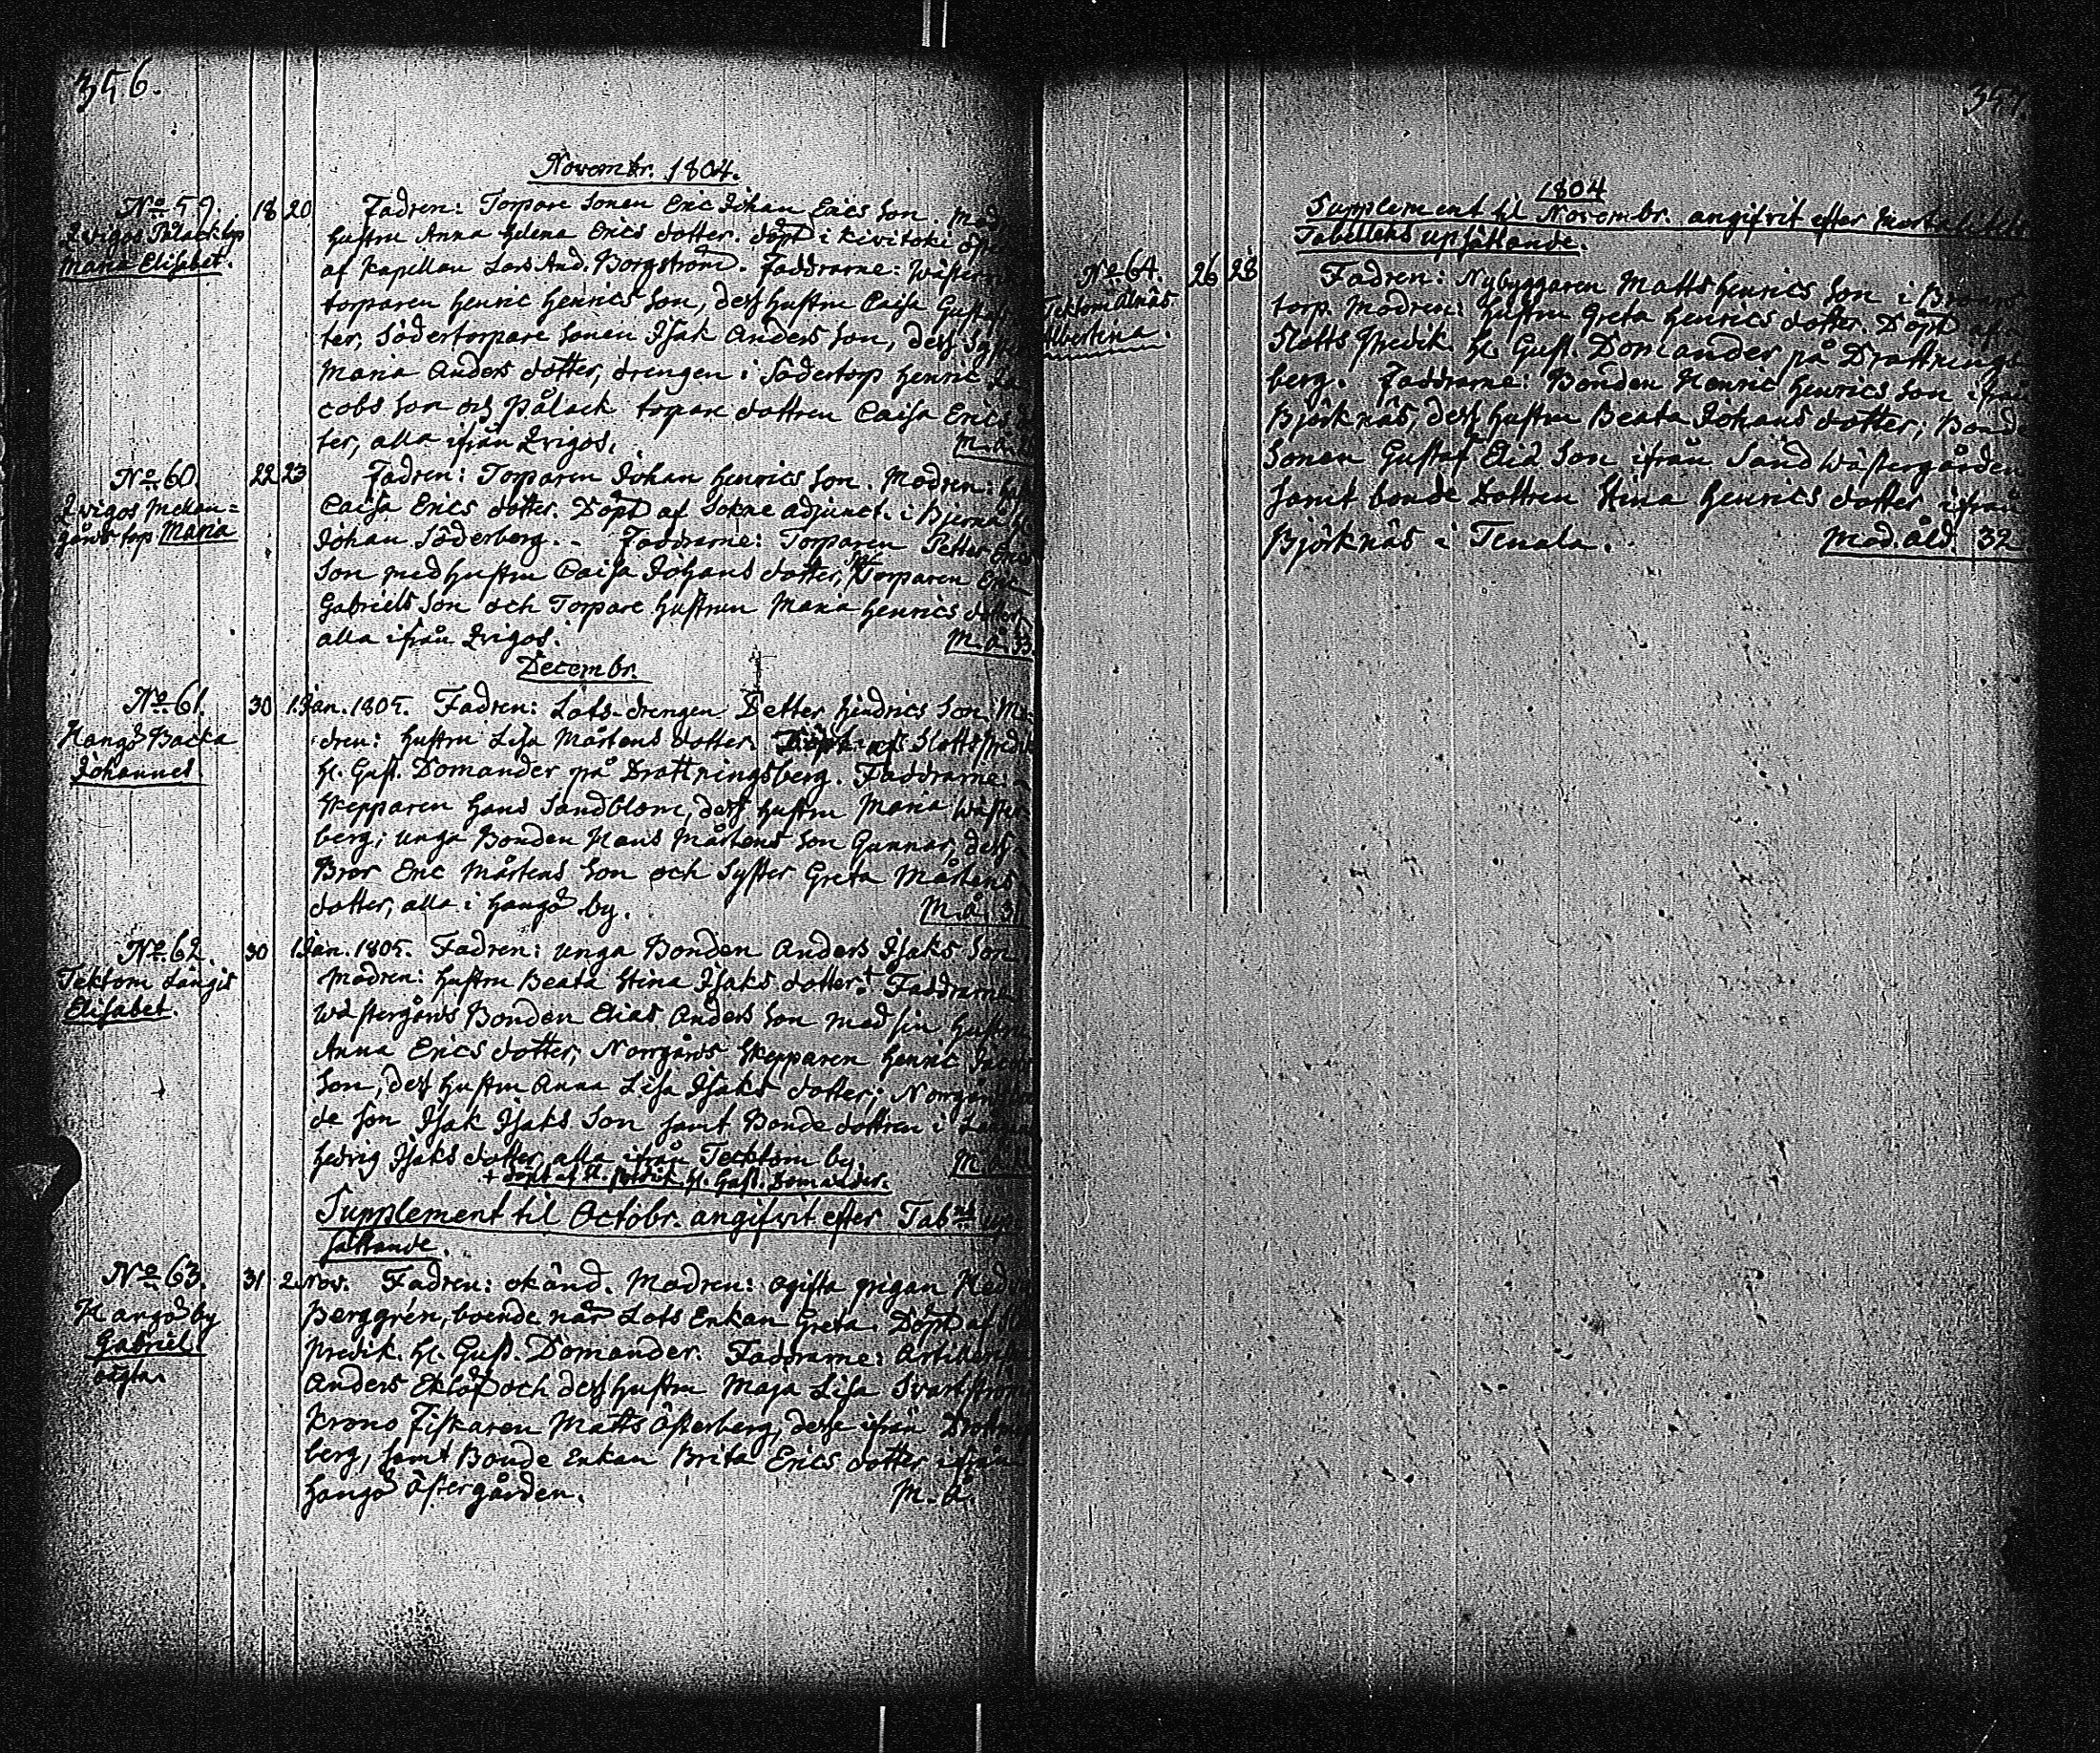 356.
Novembr. 1804.
No 59. 18 20 Fadren: Torpare Sonen Eric Johan Erics Son. Mod
Qvigos Pålack top hustru Anna Helena Erics dotter. döpt i Kivitoki
Maria Elisabet. af Kapellan Lars And. Borgström. Faddrarne: Wäster
torparen Henric Henrics Son, dess hustru Caisa Gustaf
ter, Södertorpare Sonen Isak Anders Son, dess Syster
Maria Anders dotter, drengen i Södertorp Henric Ja
cobs Son och Pålack torpare dottren Caisa Erics
ter, alla ifrån Qvigos. M.å.
No 60. 22 23 Fadren: Torparen Johan Henrics Son. Modren: hust
Qvigos Mellan= Caisa Erics dotter. Döpt af Sokne adjunct. i Bjerno
gårds torp Maria Johan Söderberg. - Faddrarne: Torparen Petter Erics
Son med hustru Caisa Johans dotter, Torparen Eric
Gabriels Son och Torpare hustrun Maria Henrics dotter
alla ifrån Qvigos. M.å. 33.
Decembr.
No 61. 30 1 Jan. 1805. Fadren: Lots-drengen Petter Hindrics Son. Mo-
Hangö Backa dren: hustru Lisa Mårtens dotter. Döpt af Slotts Predik
Johannes. H. Gust. Domander på Drottningsberg. Faddrarne:
Skepparen Hans Sandblom, dess hustru Maria Wäster
berg; unga Bonden Hans Mårtens Son Gunnar, dess
Bror Eric Mårtens Son och Syster Greta Mårtens
dotter, alla i Hangö by. M.å. 31
No 62. 30 1 Jan. 1805. Fadren: unga Bonden Anders Isaks Son
Tektom Långis Modren: hustru Beata Stina Isaks dotter.+ Faddrarne
Elisabet. Wästergårds Bonden Elias Anders Son med sin hustru
Anna Erics dotter, Norrgårds Skepparen Henric Jacobs
Son, dess hustru Anna Lisa Isaks dotter; Norrgårds bon
de son Isak Isaks Son samt Bonde dottren i
Hedvig Isaks dotter, alla ifrån Tecktom by. M.å.
+ döpt af Sl. Predik. H. Gust. Domander.
Supplement til Octobr. angifvit efter Tab:ns up
sättande.
No 63. 31 2 Nov. Fadren: okänd. Modren: ogifta pigan Hed
Hangö by Berggrén, boende når Lots Enkan Greta. Döpt af
Gabriel. Predik. H. Gust. Domander. Faddrarne: Artilleri
oägta. Anders Eklöf och dess hustru Maja Lisa Svartström
Krono Fiskaren Matts Österberg, desse ifrån Drottnings
berg, samt Bonde Enkan Brita Erics dotter ifrån
Hangö Östergården. M. å.
357.
1804
Supplement til Novembr. angifvit efter Mortalitets
Tabellens upsättande.
No 64. 26 28 Fadren: Nybyggaren Matts Henrics Son i
Tektom Alnäs torp. Modren: hustru Greta Henrics dotter. Döpt af
Albertina. Slotts Predik. H. Gust. Domander på Drottnings
berg. Faddrarne: Bonden Henric Henrics Son ifrån
Björknäs, dess hustru Beata Johans dotter; Bonde
Sonen Gustaf Elid Son ifrån Sand Wästergården
samt bonde Dottren Stina Henrics dotter ifrån
Björknäs i Tenala. Mod. åld. 32